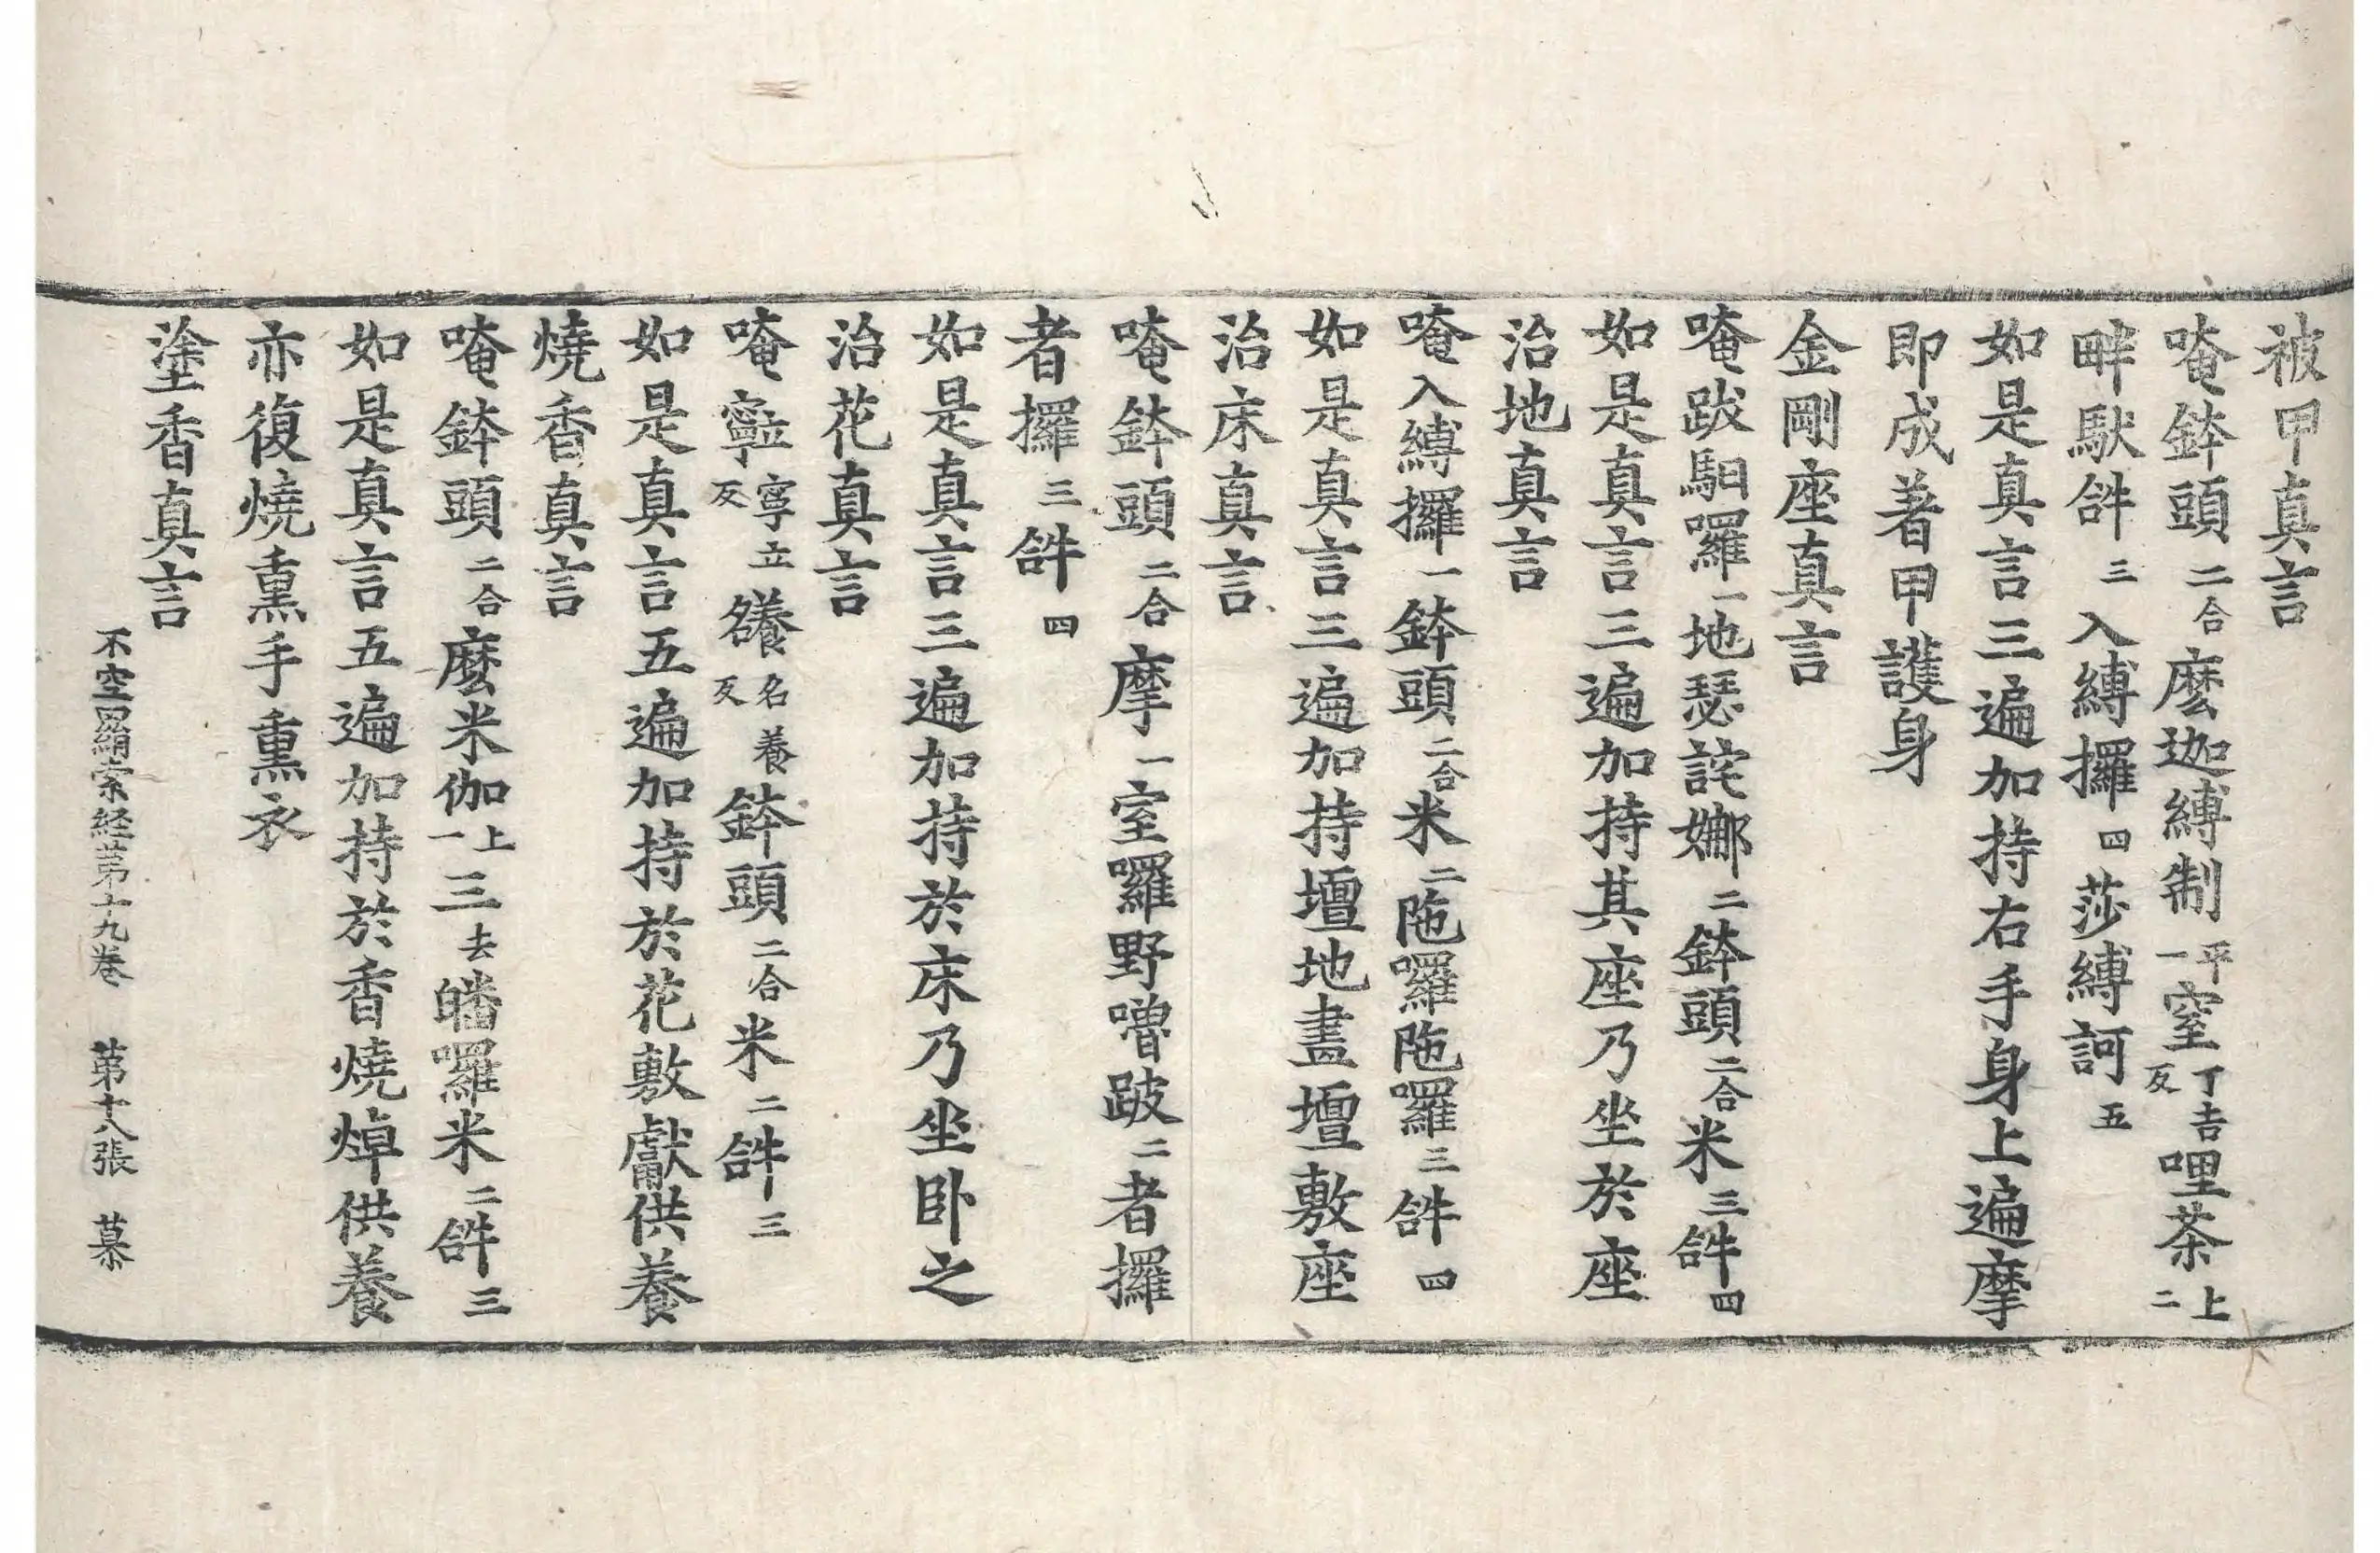 被甲真言
唵鉢頭二合麽迦縛制平一窒丁吉反哩茶上二
畔馱𤙖三入縛攞四莎縛訶五
如是真言三遍加持右手身上遍摩
即成著甲護身
金剛座真言
唵跋馹囉一地瑟詫娜二鉢頭二合米三𤙖四
如是真言三遍加持其座乃坐於座
治地真言
唵入縛攞一鉢頭二合米二陁囉陁囉三𤙖四
如是真言三遍加持壇地畫壇敷座
治床真言
唵鉢頭二合摩一室囉野嚕跛二者攞
者攞三𤙖四
如是真言三遍加持於床乃坐卧之
治花真言
唵寧立反名養反鉢頭二合米二𤙖三
如是真言五遍加持於花敷獻供養
燒香真言
唵鉢頭二合麽米伽上一三去皤囉米二𤙖三
如是真言五遍加持於香燒焯供養
亦復燒熏手熏衣
塗香真言
不空羂索経第十九卷 第十八張 慕